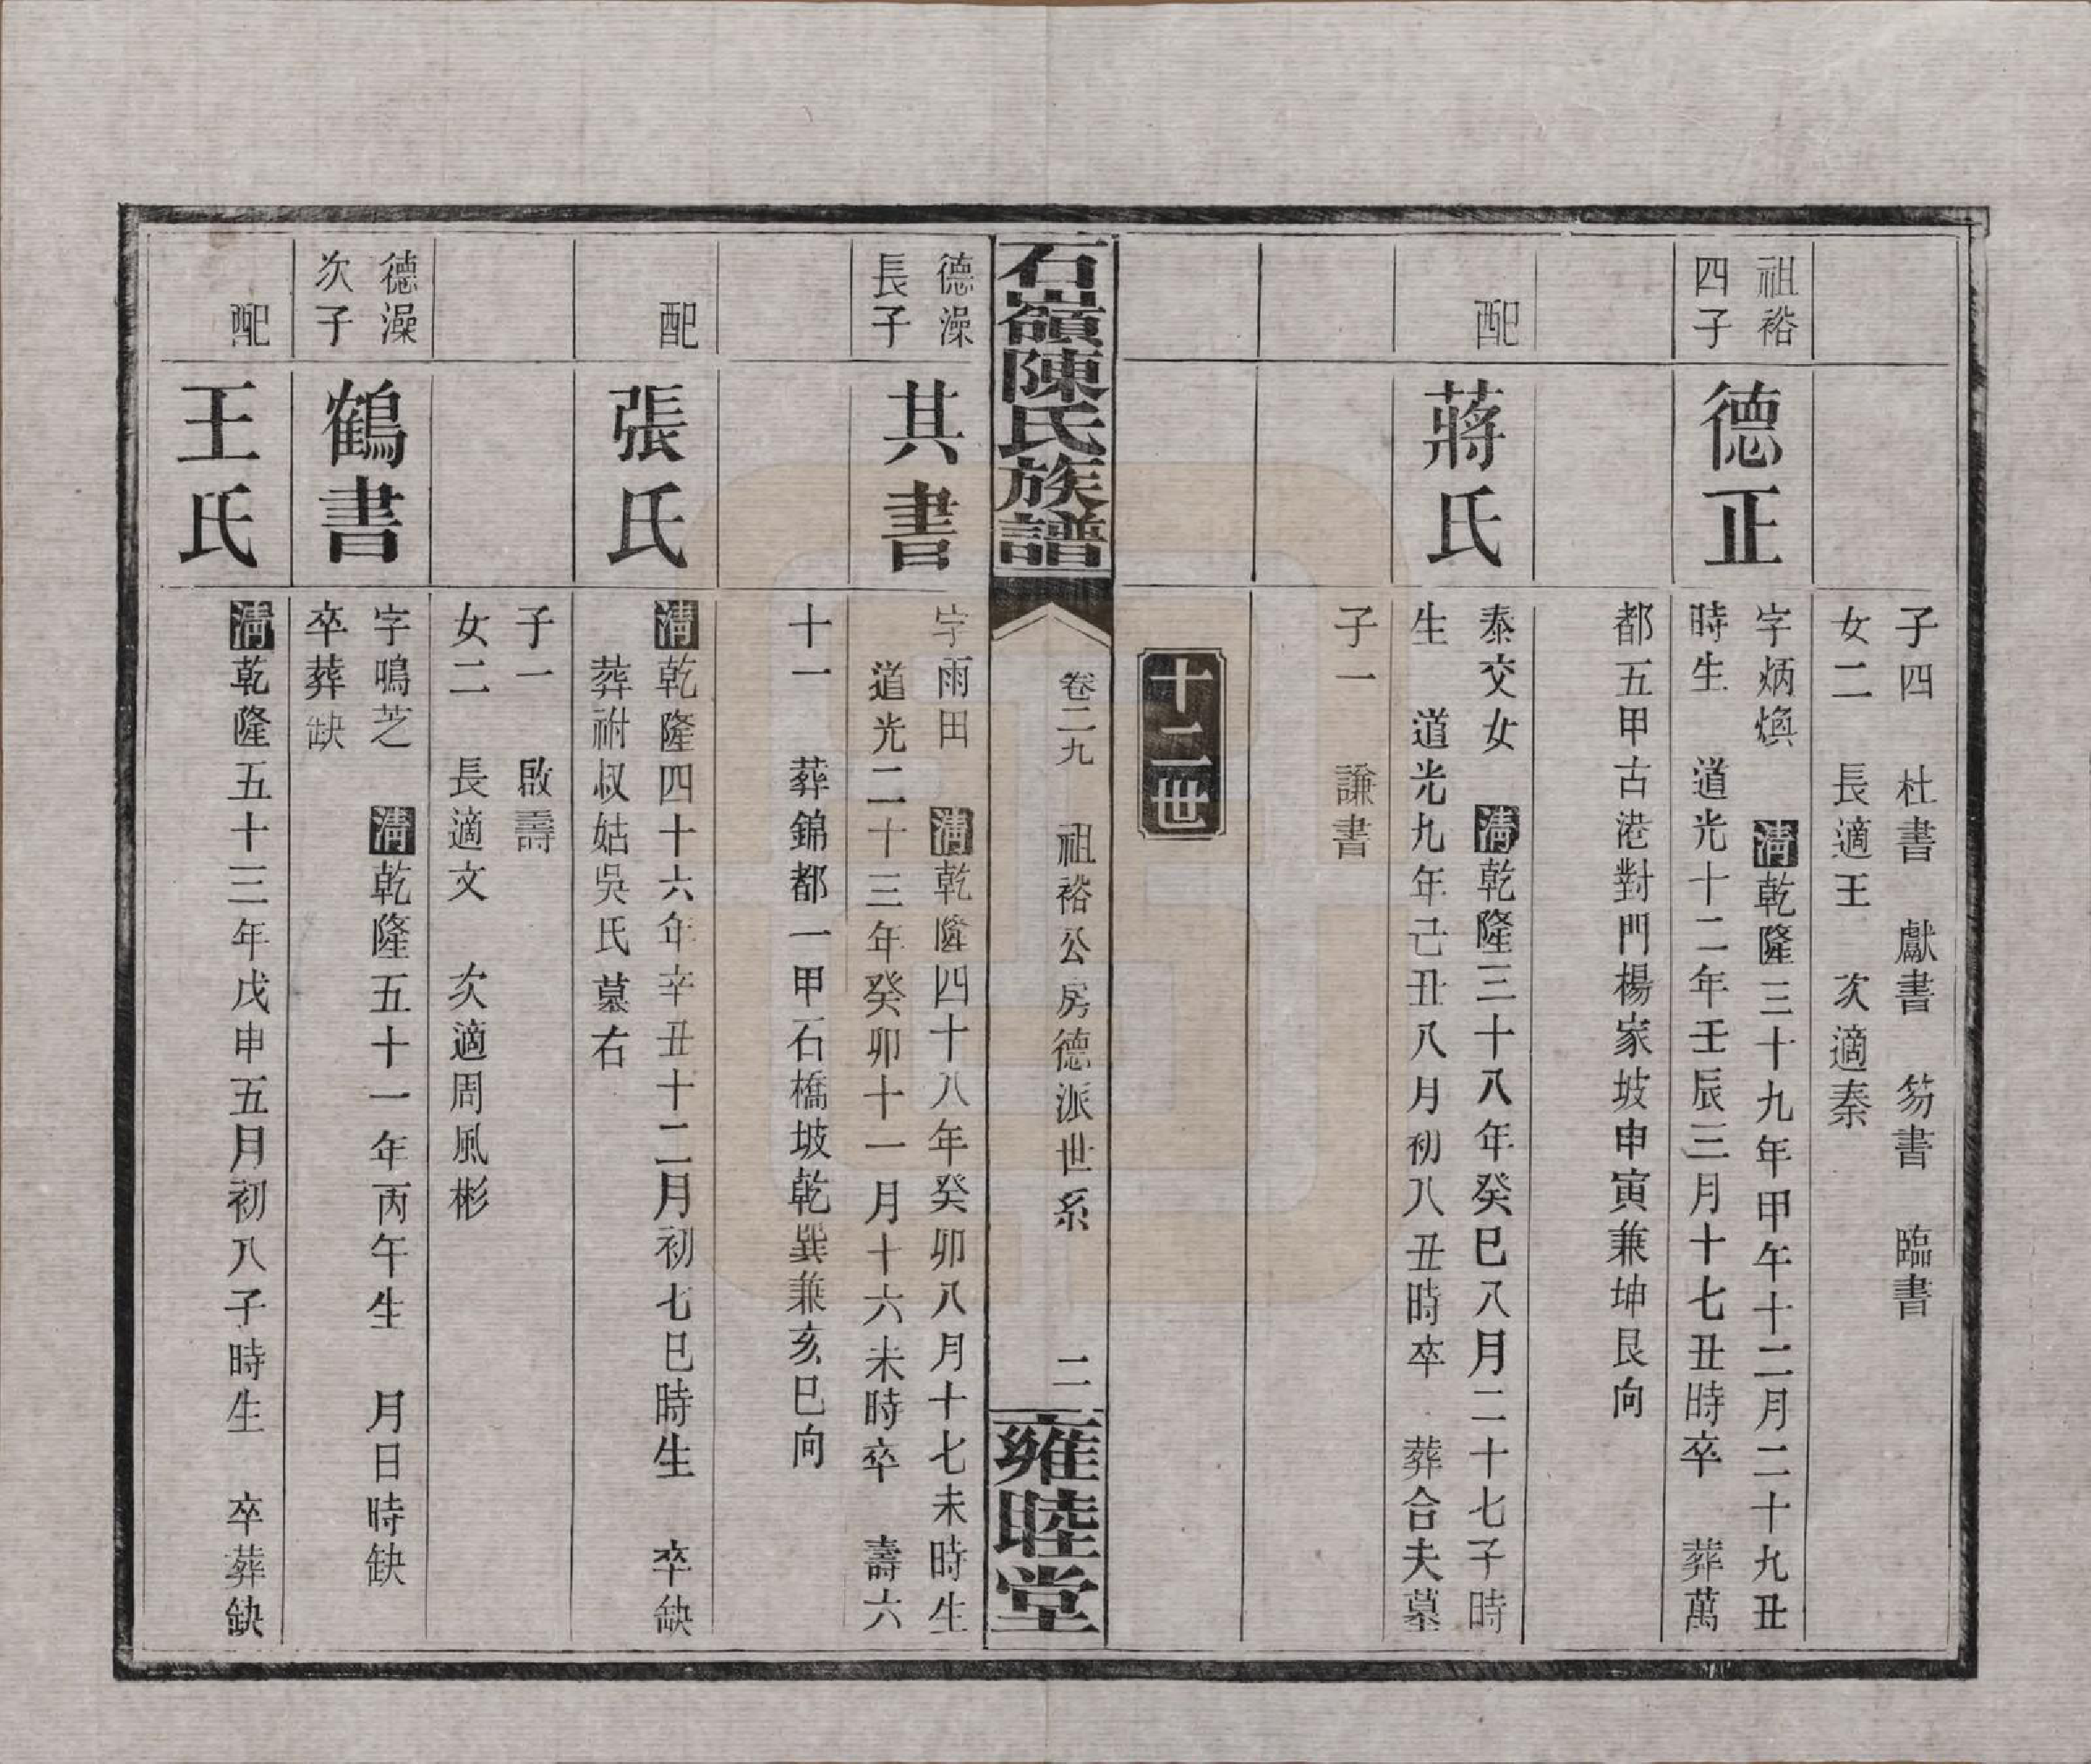 子四　杜書　獻書　笏書　臨書
女二　長適王　次適秦
祖裕
四子
德正
字炳煥　清乾隆三十九年甲午十二月二十九丑
時生　道光十二年壬辰三月十七丑時卒　葬萬
都五甲古港對門楊家坡申寅兼坤艮向
配
蔣氏
泰交女　清乾隆三十八年癸巳八月二十七子時
生　道光九年己丑八月初八丑時卒　葬合夫墓
子一　謙書
十二世
石嶺陳氏族譜
卷二九　祖裕公房德派世系　二
雍睦堂
德澡
長子
其書
字雨田　清乾隆四十八年癸卯八月十七未時生
道光二十三年癸卯十一月十六未時卒　壽六
十一　葬錦都一甲石橋坡乾巽兼亥巳向
配
張氏
清乾隆四十六年辛丑十二月初七巳時生　卒缺
葬祔叔姑吳氏墓右
子一　啟壽
女二　長適文　次適周風彬
德澡
次子
鶴書
字鳴芝　清乾隆五十一年丙午生　月日時缺
卒葬缺
配
王氏
清乾隆五十三年戊申五月初八子時生　卒葬缺